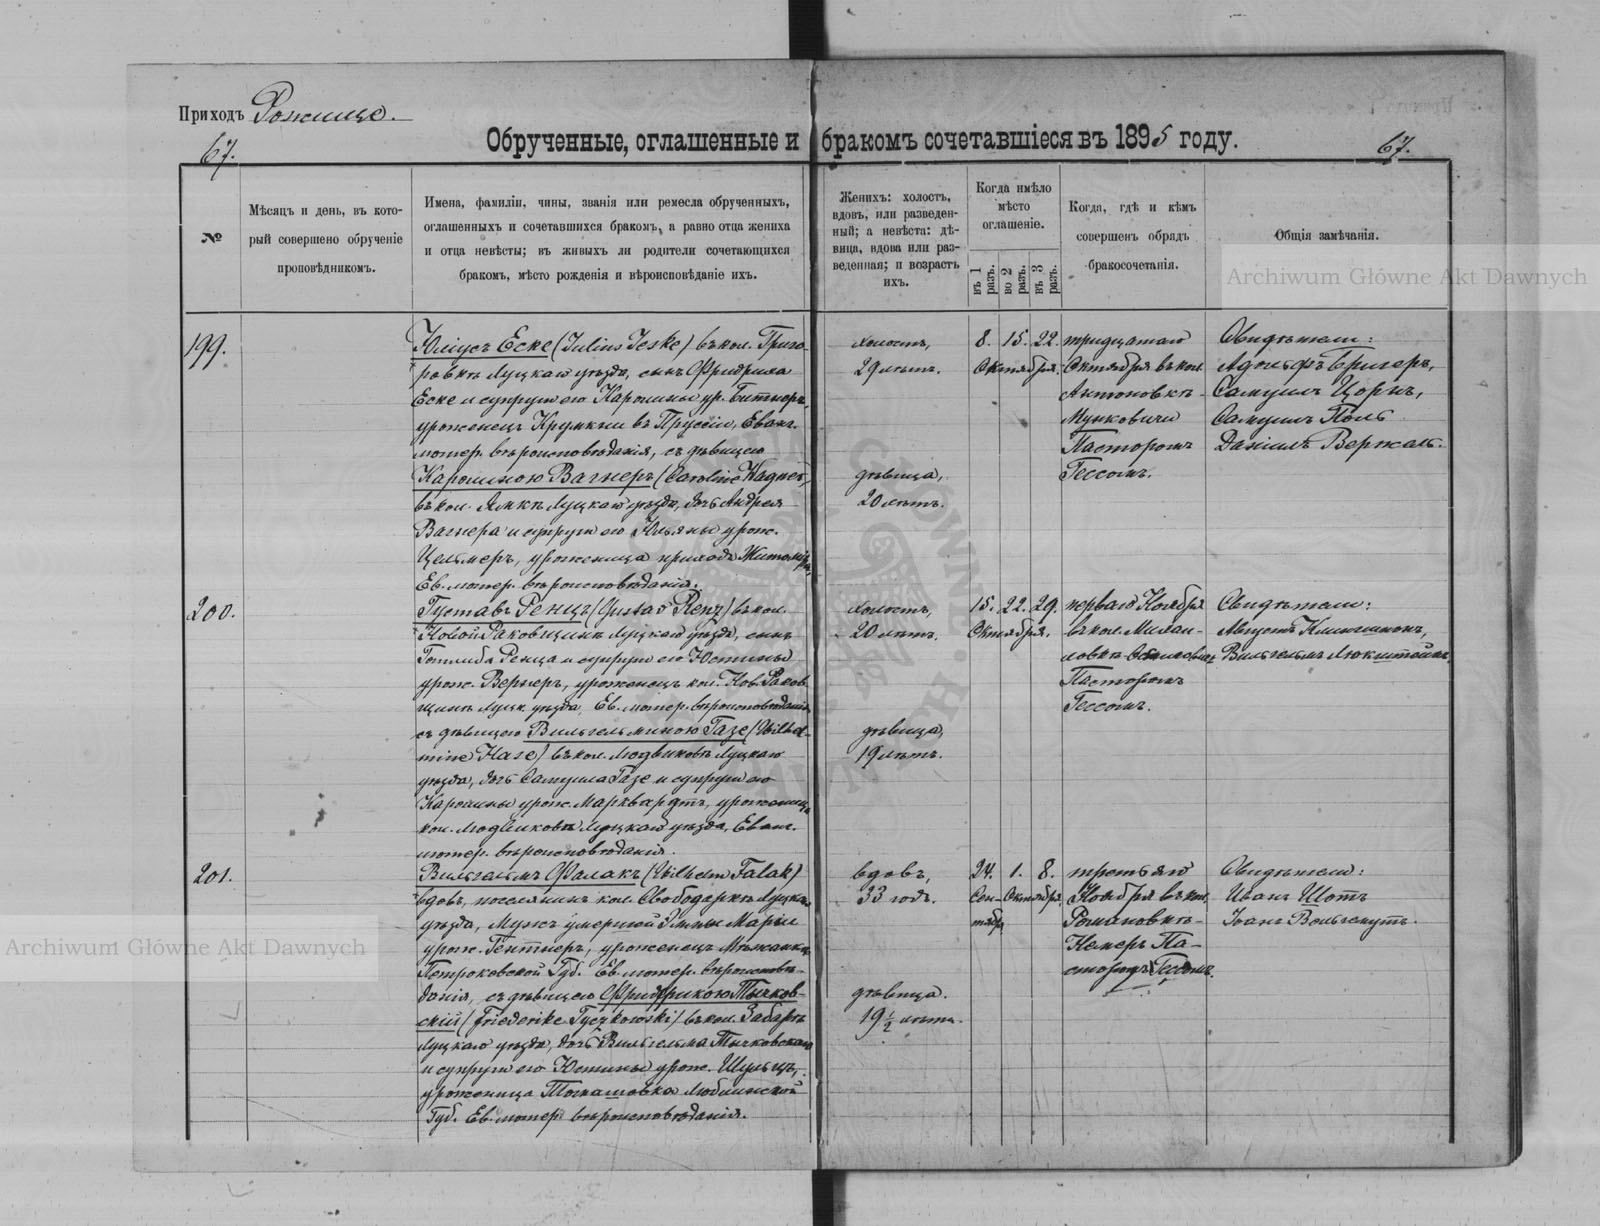 Приходъ Рожище.
67.
Обрученные, оглашенные и бракомъ сочетавшіеся въ 1895 году.
67.
№
Мѣсяцъ и день, въ кото-
рый совершено обрученіе
проповѣдникомъ.
Имена, фамиліи, чины, званія или ремесла обрученныхъ,
оглашенныхъ и сочетавшихся бракомъ, а равно отца жениха
и отца невѣсты; въ живыхъ ли родители сочетающихся
бракомъ, мѣсто рожденія и вѣроисповѣданіе ихъ.
Женихъ: холостъ,
вдовъ, или разведен-
ный; а невѣста: дѣ-
вица, вдова или раз-
веденная; и возрастъ
ихъ.
Когда имѣло
мѣсто
оглашеніе.
въ 1 разъ.
во 2 разъ.
въ 3 разъ.
Когда, гдѣ и кѣмъ
совершенъ обрядъ
бракосочетанія.
Общія замѣчанія.
Archiwum Główne Akt Dawnych
199.
Юліусъ Еске (Julius Jeske) въ кол. Григо-
ровкѣ Луцкаго уѣзда, сынъ Фридриха
Еске и супруги его Каролины ур. Битнеръ,
уроженецъ Крумкни въ Пруссіи, Еванг.
лютер. вѣроисповѣданія, съ дѣвицею
Каролиною Вагнеръ (Caroline Wagner)
въ кол. Ямкѣ Луцкаго уѣзда, дочь Андрея
Вагнера и супруги его Юльяны урож.
Цельмеръ, уроженица прихода Житоміръ,
Ев. лютер. вѣроисповѣданія.
холостъ,
29 лѣтъ.
дѣвица,
20 лѣтъ.
8. 15. 22.
Октября.
тридцатаго
Октября въ кол.
Антоновкѣ-
Мунковичи
Пасторомъ
Гессомъ.
Свидѣтели:
Адольфъ Бригеръ,
Самуилъ Цорнъ,
Самуилъ Поль
Даніилъ Вержаль.
200.
Густавъ Ренцъ (Gustav Renz) въ кол.
Новой Раковщинѣ Луцкаго уѣзда, сынъ
Готлиба Ренца и супруги его Юстины
урож. Вернеръ, уроженецъ кол. Нов. Раков-
щинѣ Луцк. уѣзда, Ев. лютер. вѣроисповѣданія
съ дѣвицею Вильгельминою Газе (Wilhel-
mine Hase) въ кол. Людвиковкѣ Луцкаго
уѣзда, дочь Самуила Газе и супруги его
Каролины урож. Марквардтъ, уроженица
кол. Людвиковкѣ Луцкаго уѣзда, Еванг.
лютер. вѣроисповѣданія.
холостъ,
20 лѣтъ.
дѣвица,
19 лѣтъ.
15. 22. 29.
Октября.
перваго Ноября
въ кол. Михаи-
ловкѣ
Пасторомъ
Гессомъ.
Свидѣтели:
Августъ Клингманнъ,
Вильгельмъ Люкштейнъ.
201.
Вильгельмъ Фалакъ (Wilhelm Falak)
вдовъ, поселянинъ кол. Свободаркѣ Луцкаго
уѣзда, Мужъ умершей Эммы Маріи
урож. Гентнеръ, уроженецъ
Петроковской Губ. Ев. лютер. вѣроисповѣ-
данія, съ дѣвицею Фридерикою Тычков-
ской (Friederike Tyczkowski) въ кол. Забара
Луцкаго уѣзда, дочь Вильгельма Тычковскаго
и супруги его Юстины урож. Шульцъ,
уроженица Томашовка Люблинской
Губ. Ев. лютер. вѣроисповѣданія.
вдовъ,
33 года.
дѣвица.
19 ½ лѣтъ.
24. 1. 8.
Сен- Октября.
тября
третьяго
Ноября въ кол.
Романовкѣ-
Немеръ Па-
сторомъ Гессомъ.
Свидѣтели:
Иванъ Шоттъ
Іоанъ Вольгемутъ.
Archiwum Główne Akt Dawnych